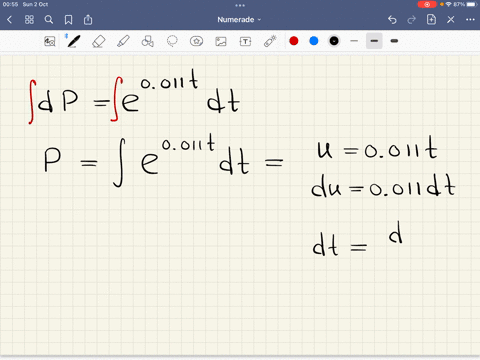 00:55 Sun 2 Oct
87%
Numerade
∫dP = ∫e^{0.011t} dt
P = ∫e^{0.011t} dt =
u = 0.011t
du = 0.011dt
dt = d